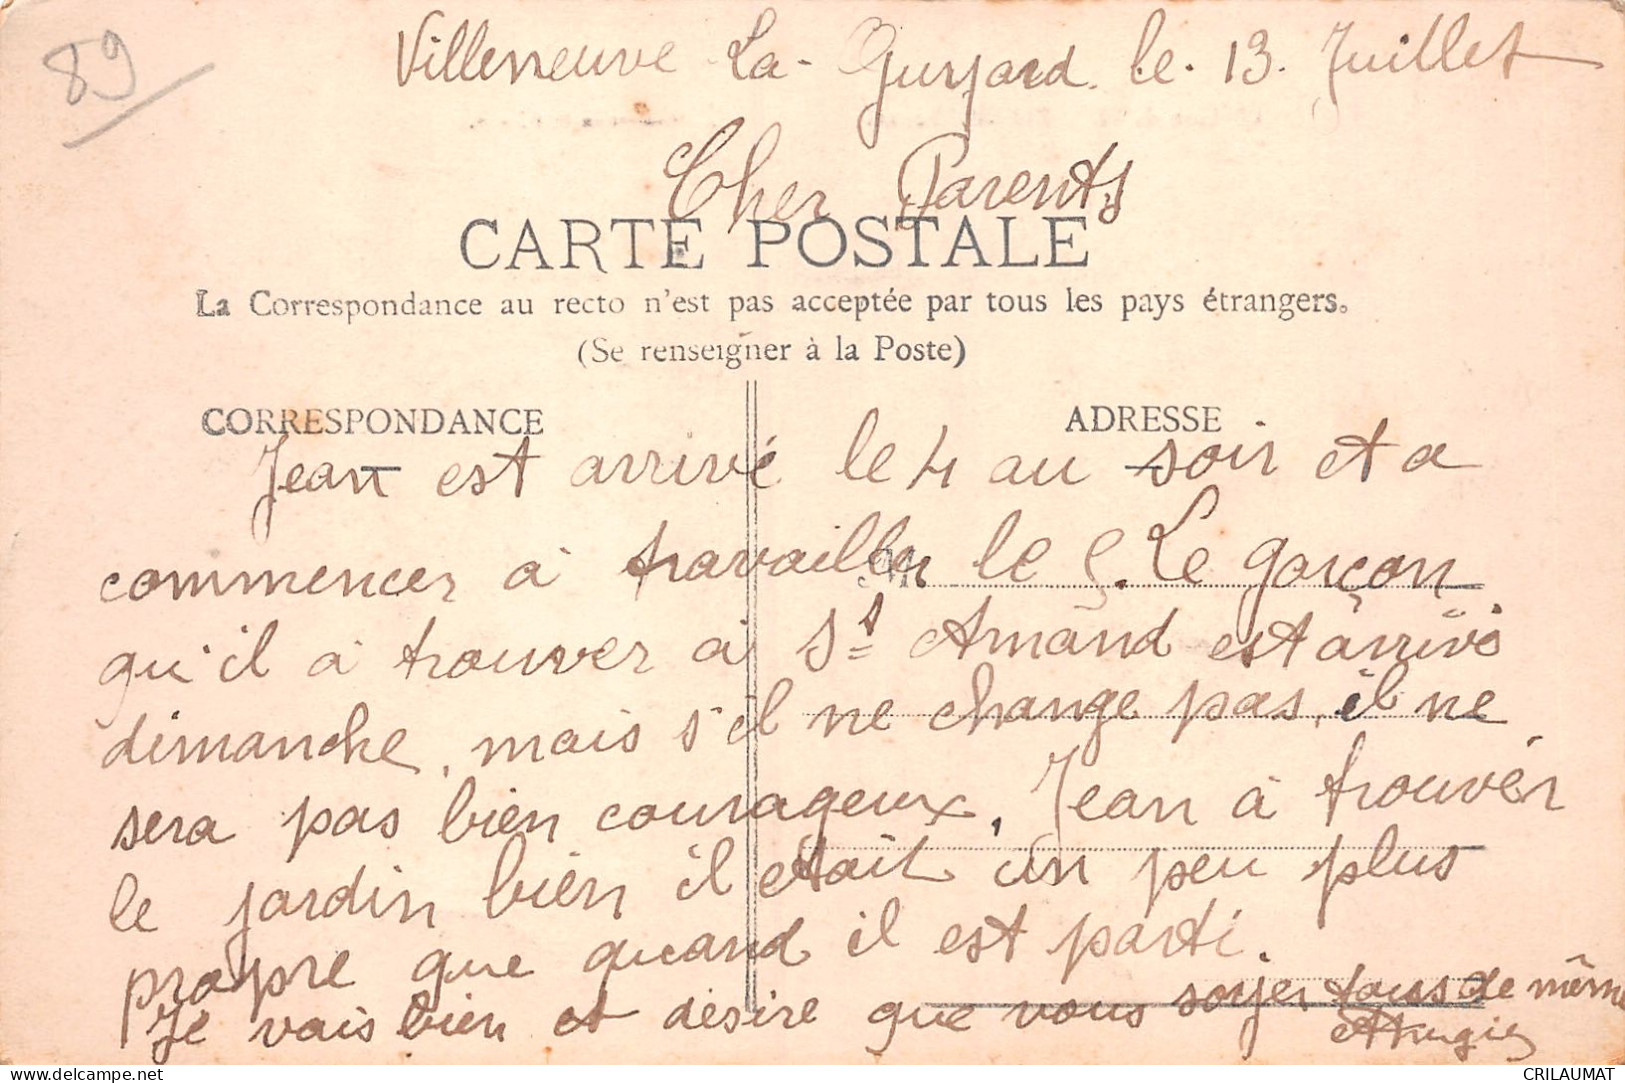 89
Villeneuve La-Guyard le 13 Juillet
Cher Parents
CARTE POSTALE
La Correspondance au recto n'est pas acceptée par tous les pays étrangers.
(Se renseigner à la Poste)
CORRESPONDANCE ADRESSE
Jean est arrivé le 4 au soir et a
commencer à travailler le 5. Le garçon
qu'il à trouver à St Amand est arrivé
dimanche, mais s'il ne change pas, il ne
sera pas bien courageux. Jean à trouver
le jardin bien il etait un peu plus
propre que quand il est parti.
Je vais bien et désire que vous soyez tous de même
CRILAUMAT